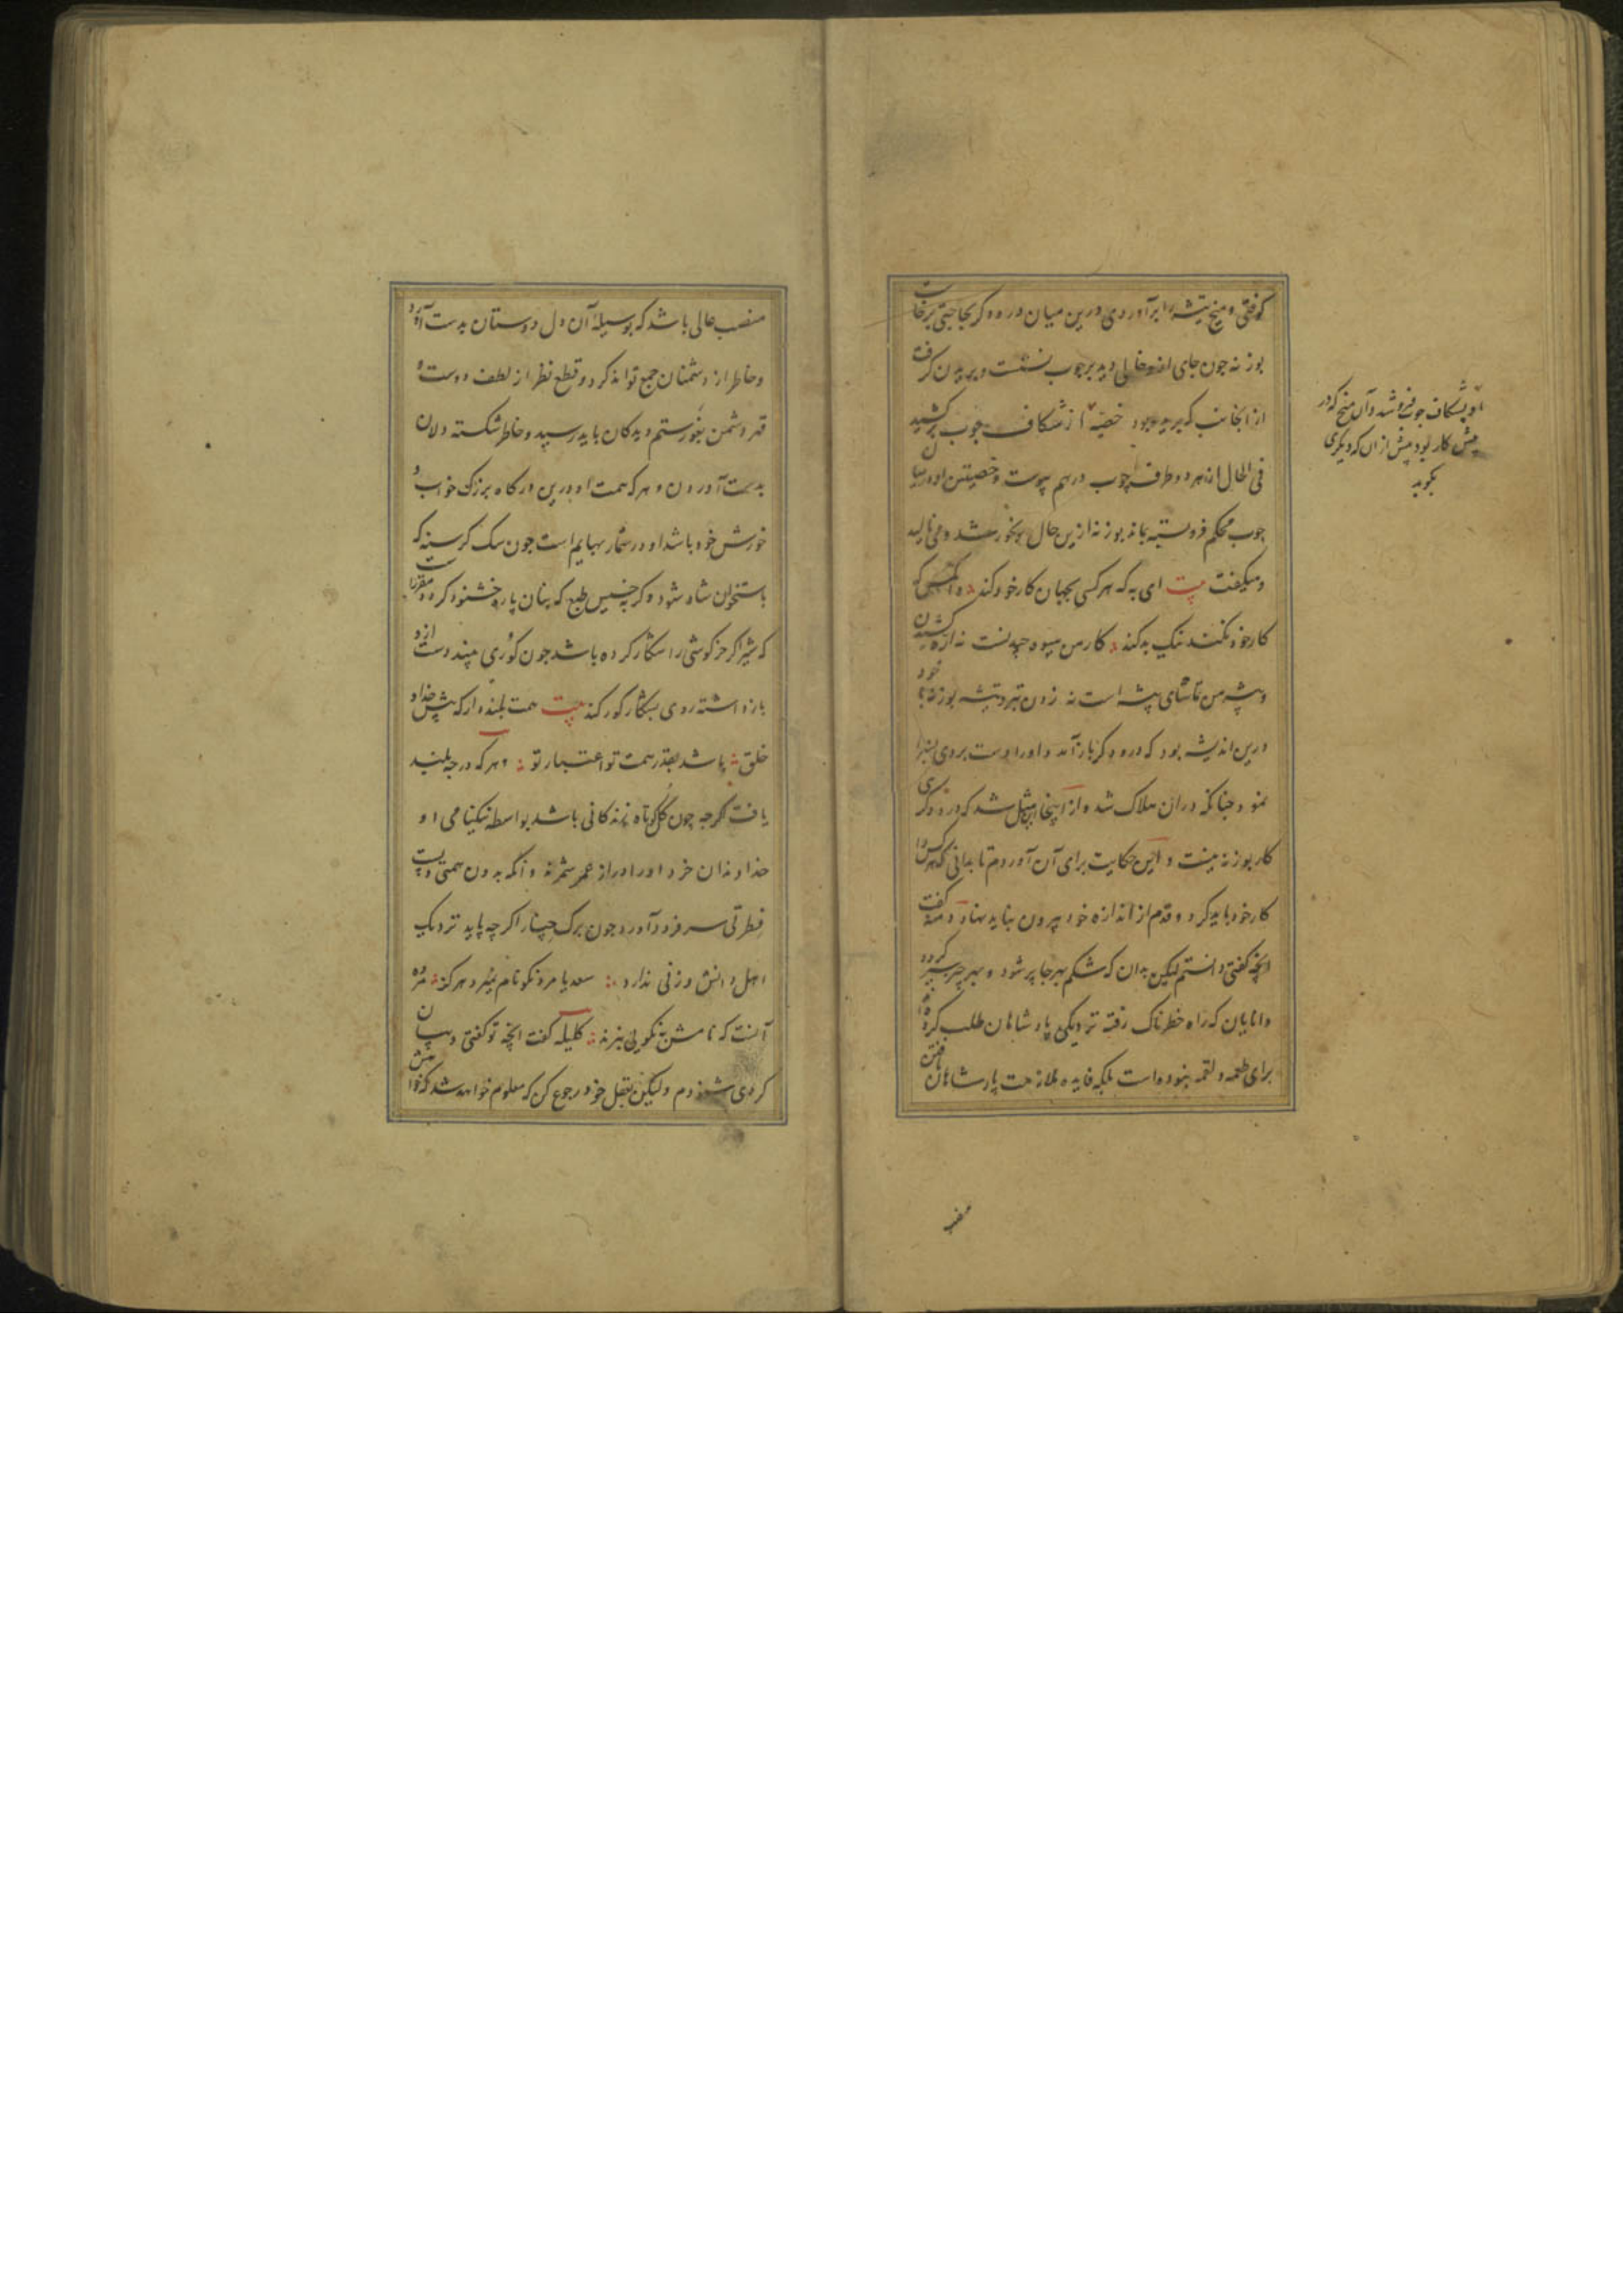 کوفتی و میخ پیشه را برآوردی درین میان درودکر بحاجتی برخاست
بوزنه چون جای ازو خالی دید بر چوب نشست و بریدن کرفت
از انجانب که بریده بود خصیهٔ او از شکاف چوب
فی الحال از هر دو طرف چوب درهم پیوست و خصیتین او در میان
چوب محکم فروبسته بماند بوزنه ازین حال رنجور شد و می نالید
و میکفت بیت ای به که هرکسی بجهان کار خود کند وانکس که
کار خود نکند نیک بد کند کار من میوه چیدنست نه اره کشیدن
و پیشه من تماشای بیشه است نه زدن تبر و تیشه بوزنه با خود
درین اندیشه بود که درودکر باز آمد و او را دست بردی بسزا
نمود چنانکه دران هلاک شد و از اینجا این مثل شد که درودکری
کار بوزنه نیست و این حکایت برای آن آوردم تا بدانی که هرکس را
کار خود باید کرد و قدم از اندازه خود بیرون نباید نهاد دمنه کفت
انچه کفتی دانستم لیکن بدان که شکم بهر جا پر شود و بهر چیز سیر کردد
دانایان که راه خطرناک رفته نزدیکی پادشاهان طلب کرده اند
برای طعمه و لقمه نبوده است بلکه فایده ملازمت پادشاهان یافتن
او بشکاف چوب فروشد و آن میخ که در
پیش کار بود پیش از ان که دیکری
بکوبد
منصب
منصب عالی باشد که بوسیلهٔ آن دل دوستان بدست آورد
و خاطر از دشمنان جمع تواند کرد و قطع نظر از لطف دوست و
قهر دشمن بغور ستم دیدکان باید رسید و خاطر شکسته دلان
بدست آوردن و هر که همت او درین درکاه بزرک خواب و
خورش خود باشد او در شمار بهایم است چون سک کرسنه که
باستخوان شاد شود و کربه خسیس طبع که بنان پاره خشنود کردد و مقررست
که شیر اکر خرکوشی را شکار کرده باشد چون کوری بیند دست ازو
بازداشته روی بشکار کور کند بیت همت بلند دار که پیش خدا و
خلق باشد بقدر همت تو اعتبار تو هر که درجه بلند
یافت اکرچه چون کل کوتاه زندکانی باشد بواسطه نیکنامی او
خداوندان خرد او را دراز عمر شمرند و آنکه بدون همتی و پست
فطرتی سر فرود آورد چون برک چنار اکرچه پاید نزدیک
اهل دانش وزنی ندارد سعدیا مرد نکونام نمیرد هرکز مرده
آنست که نامش به نکویی نبرند کلیله کفت انچه تو کفتی و بیان
کردی شنودم ولیکن بعقل خود رجوع کن که معلوم خواهد شد که